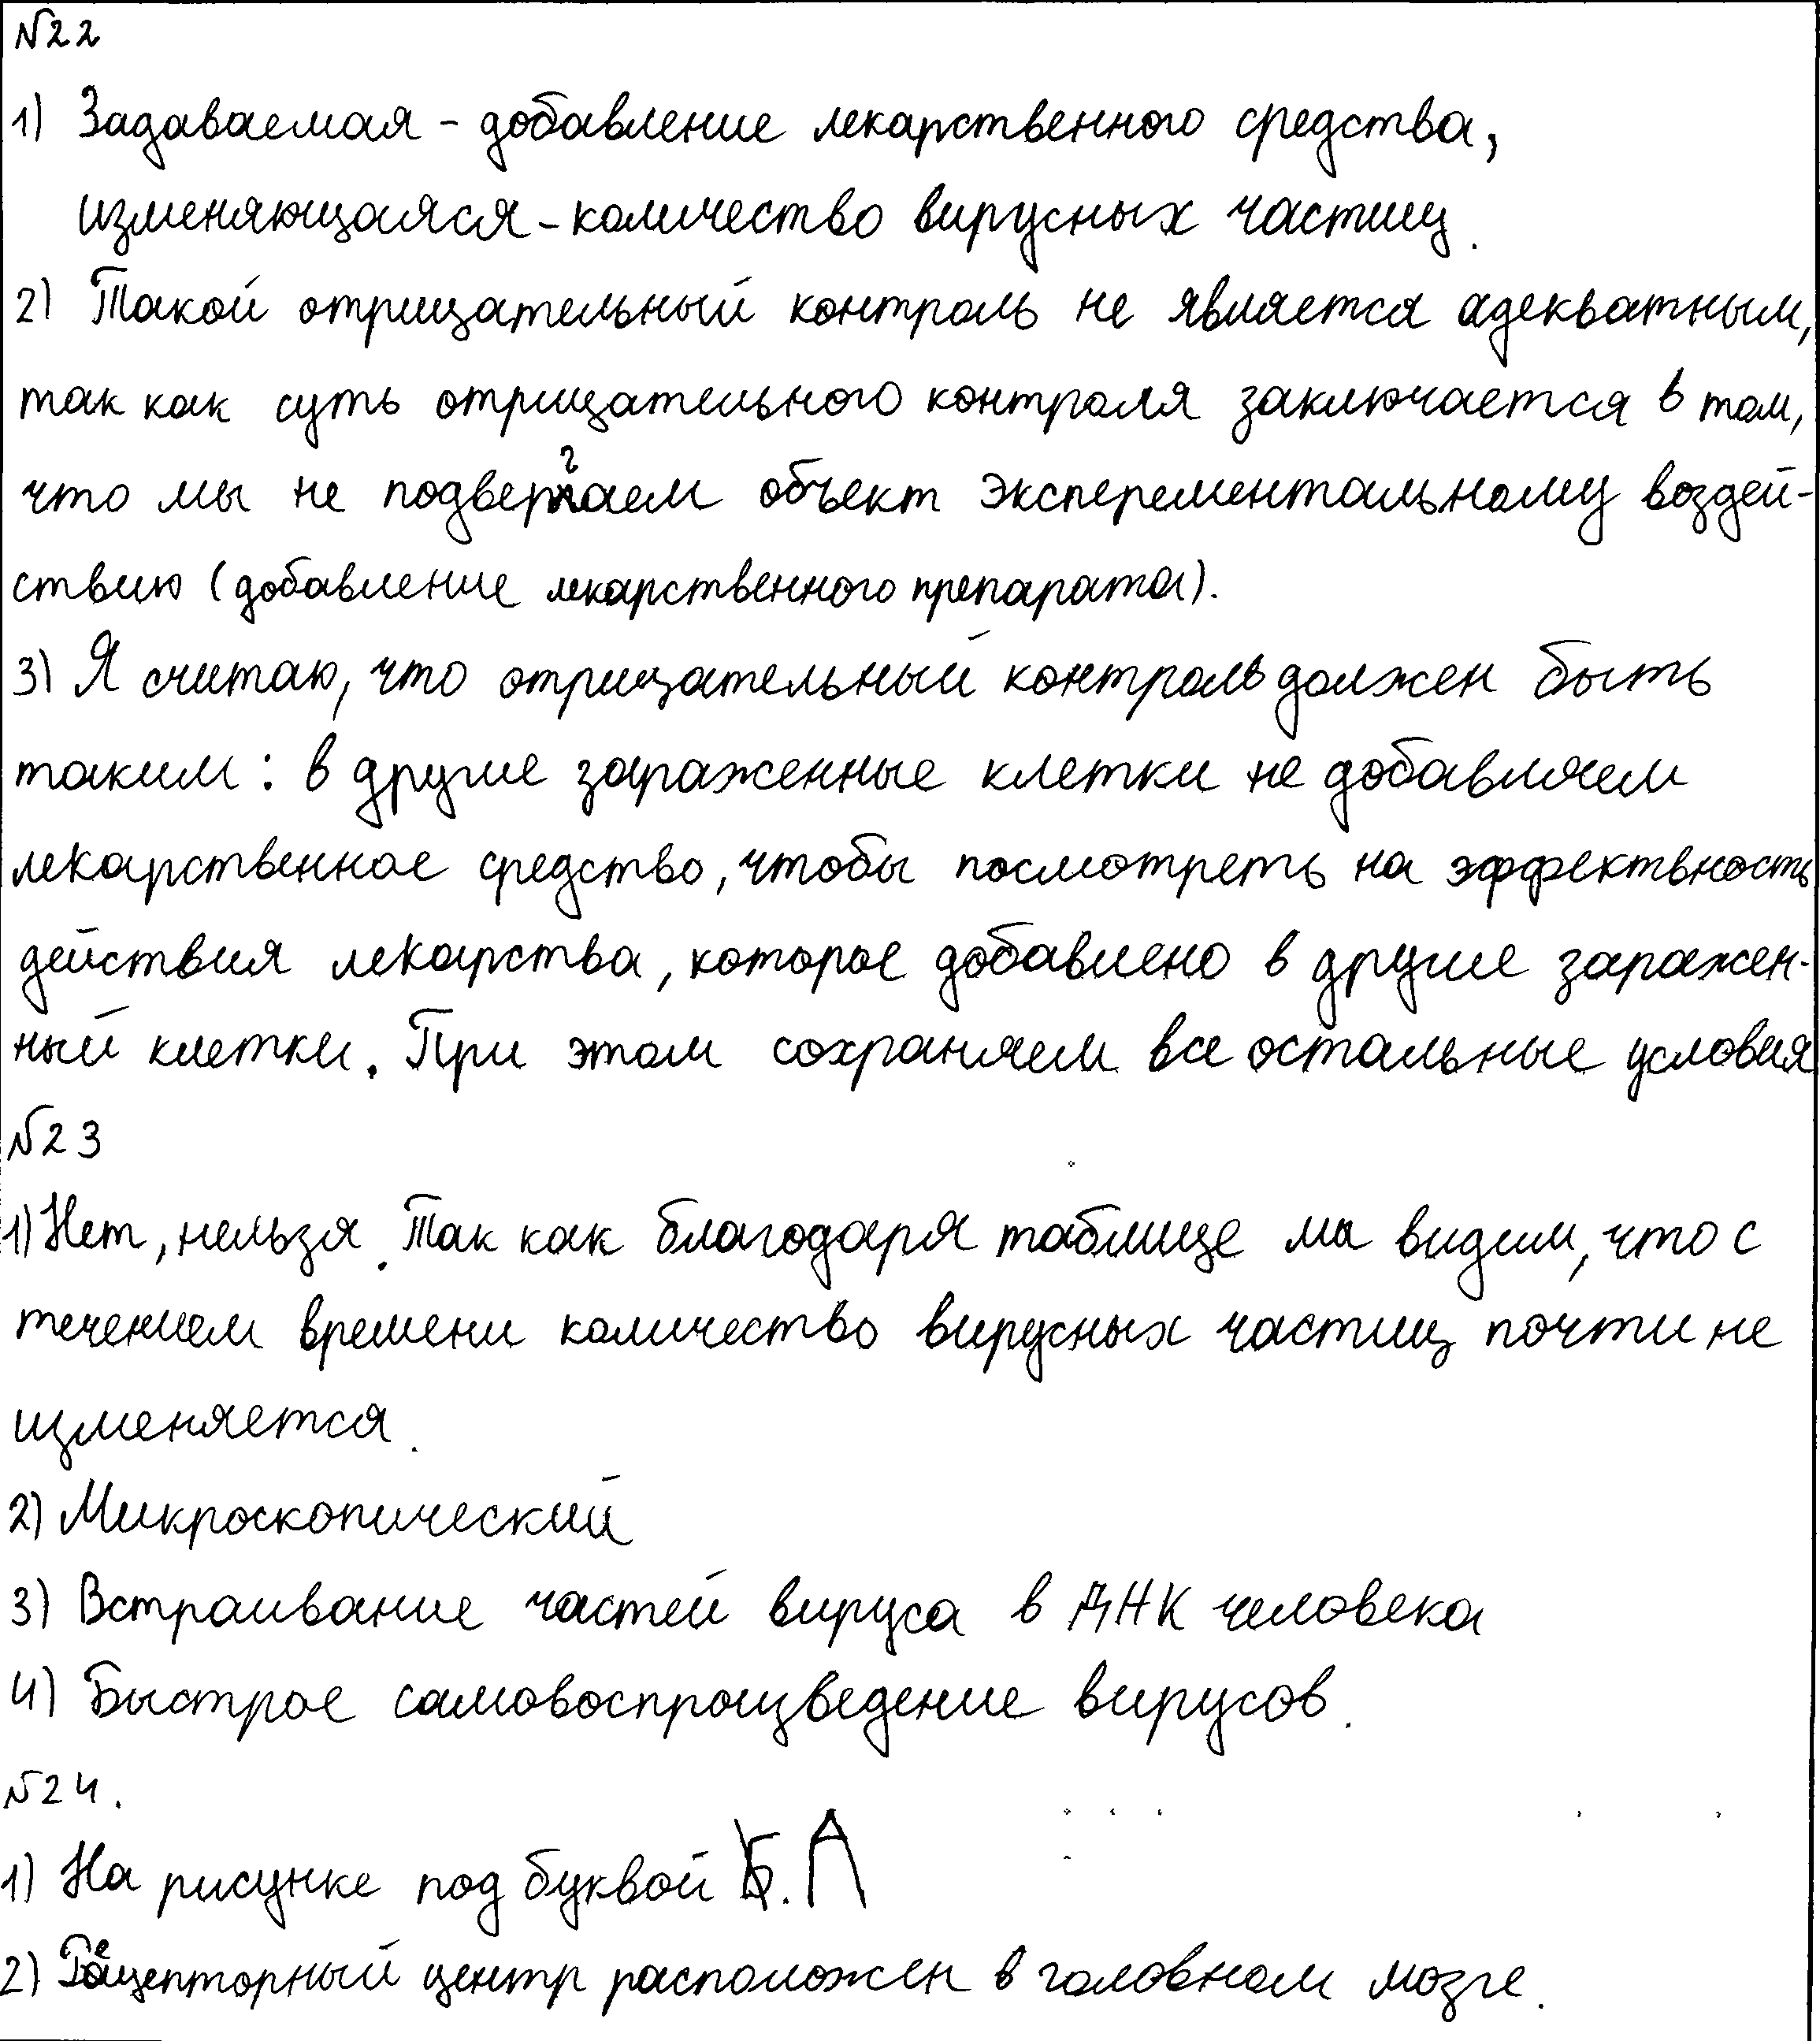 №22
1) Задаваемая - добавление лекарственного средства,
изменяющаяся - количество вирусных частиц.
2) Такой отрицательный контроль не является адекватным,
так как суть отрицательного контроля заключается в том,
что мы не подвергаем объект эксперементальному воздей-
ствию (добавление лекарственного препарата).
3) Я считаю, что отрицательный контроль должен быть
таким: в другие зараженные клетки не добавляем
лекарственное средство, чтобы посмотреть на эффектвность
действия лекарства, которое добавлено в другие заражен-
ный клетки. При этом сохраняем все остальные условия
№23
1) Нет, нельзя. Так как благодаря таблице мы видим, что с
течением времени количество вирусных частиц почти не
изменяется.
2) Микроскопический
3) Встраивание частей вируса в ДНК человека
4) Быстрое самовоспроизведение вирусов.
№24.
1) На рисунке под буквой Б. А
2) Рецепторный центр расположен в головном мозге.